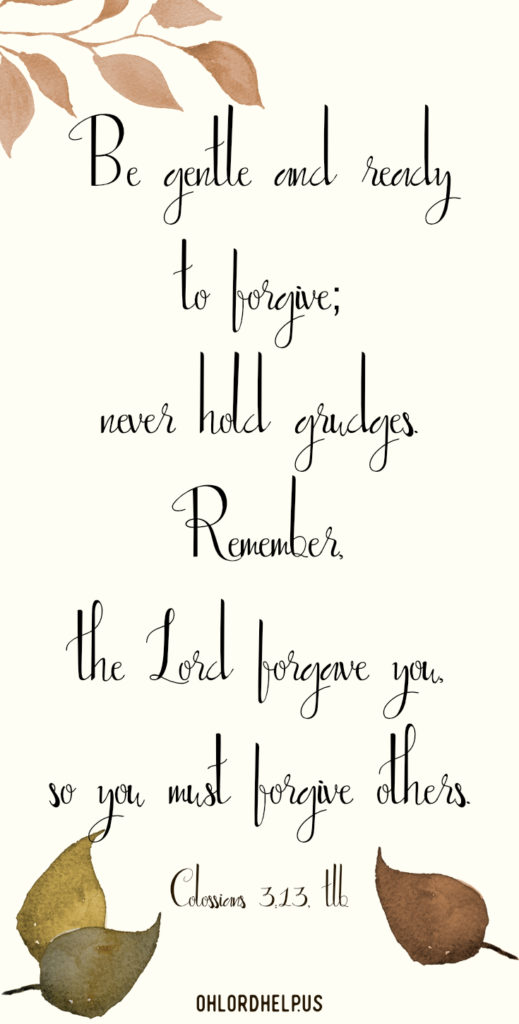 Be gentle and ready
to forgive;
never hold grudges.
Remember,
the Lord forgave you,
so you must forgive others.
Colossians 3,13, tlb
OHLORDHELP.US